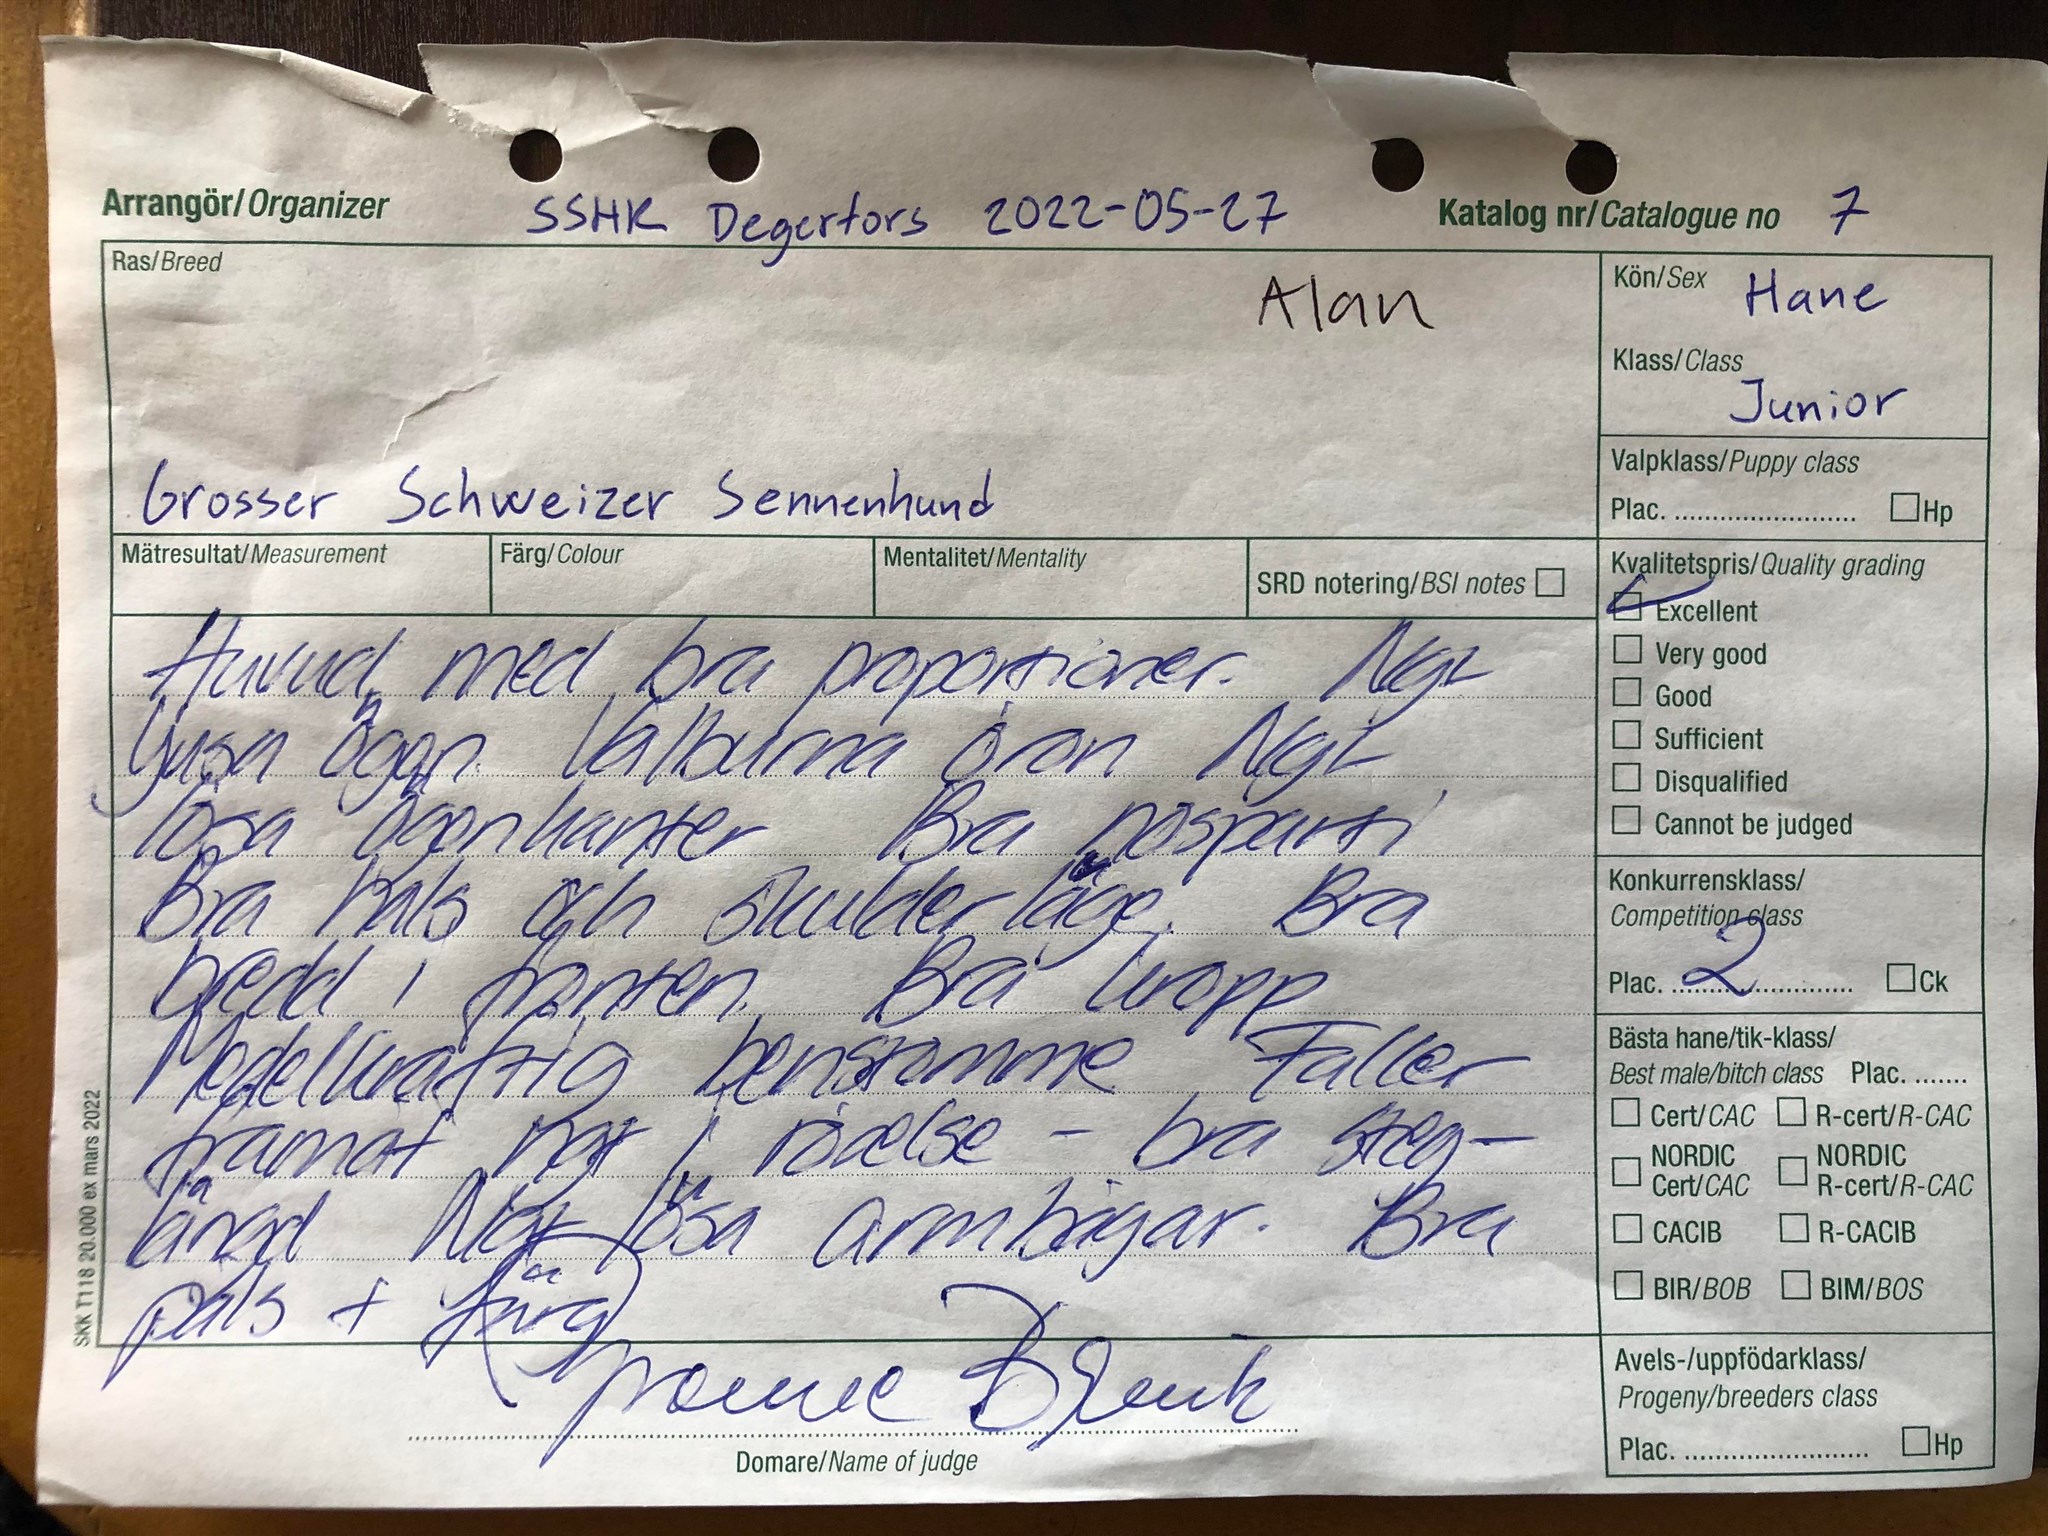 Arrangör/Organizer SSHK Degerfors 2022-05-27 Katalog nr/Catalogue no 7
Ras/Breed
Alan
Grosser Schweizer Sennenhund
Kön/Sex Hane
Klass/Class
Junior
Valpklass/Puppy class
Plac. ........................ Hp
Mätresultat/Measurement Färg/Colour Mentalitet/Mentality SRD notering/BSI notes
Huvud med bra proportioner. Ngt
ljusa ögon. Välburna öron Ngt
lösa ögonkanter Bra nosparti
Bra hals och skulderläge. Bra
bredd i fronten. Bra kropp
Medelkraftig benstomme Faller
framåt ngt i rörelse - bra steg-
längd Ngt lösa armbågar. Bra
päls + färg
Domare/Name of judge
Kvalitetspris/Quality grading
Excellent
Very good
Good
Sufficient
Disqualified
Cannot be judged
Konkurrensklass/
Competition class
Plac. 2 ........................ Ck
Bästa hane/tik-klass/
Best male/bitch class Plac. .......
Cert/CAC R-cert/R-CAC
NORDIC Cert/CAC NORDIC R-cert/R-CAC
CACIB R-CACIB
BIR/BOB BIM/BOS
Avels-/uppfödarklass/
Progeny/breeders class
Plac. ........................ Hp
SKK T118 20.000 ex mars 2022